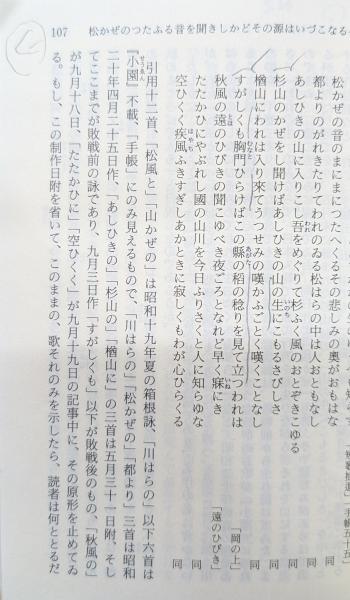 107　松かぜのつたふる音を聞きしかどその源はいづこなる
松かぜの音のまにまにつたへくるその悲しみの奥がおもはな　同
都よりのがれきたりてわれのゐる松はらの中は人おともなし　同
あしひきの山に入りこし吾をめぐりて杉ふく風のおとぞきこゆる　同
杉山のかぜをし聞けばあしひきの山の生にこもるさびしさ　同
楢山にわれは入り來てうつせみの嘆かふごとく嘆くことなし　同
すがしくも胸門ひらけばこの縣の稻の稔りを見て立つわれは　「岡の上」
秋風の遠のひびきの聞こゆべき夜ごろとなれど早く寐にき　「遠のひびき」
たたかひにやぶれし國の山川を今日ふりさくと人に知らゆな　同
空ひくく疾風ふきすぎしあかときに寂しくもわが心ひらくる　同
引用十二首、「松風と」「山かぜの」は昭和十九年夏の箱根詠、「川はらの」以下六首は
『小園』不載、「手帳」にのみ見えるもので、「川はらの」「松かぜの」「都より」三首は昭和
二十年四月二十五日作、「あしひきの」「杉山の」「楢山に」の三首は五月三十一日附、そし
てここまでが敗戦前の詠であり、九月三日作「すがしくも」以下が敗戦後のもの、「秋風の」
が九月十八日、「たたかひに」「空ひくく」が九月十九日の記事中に、その原形を止めてゐ
る。もし、この制作日附を省いて、このままの、歌それのみを示したら、読者は何ととるだ